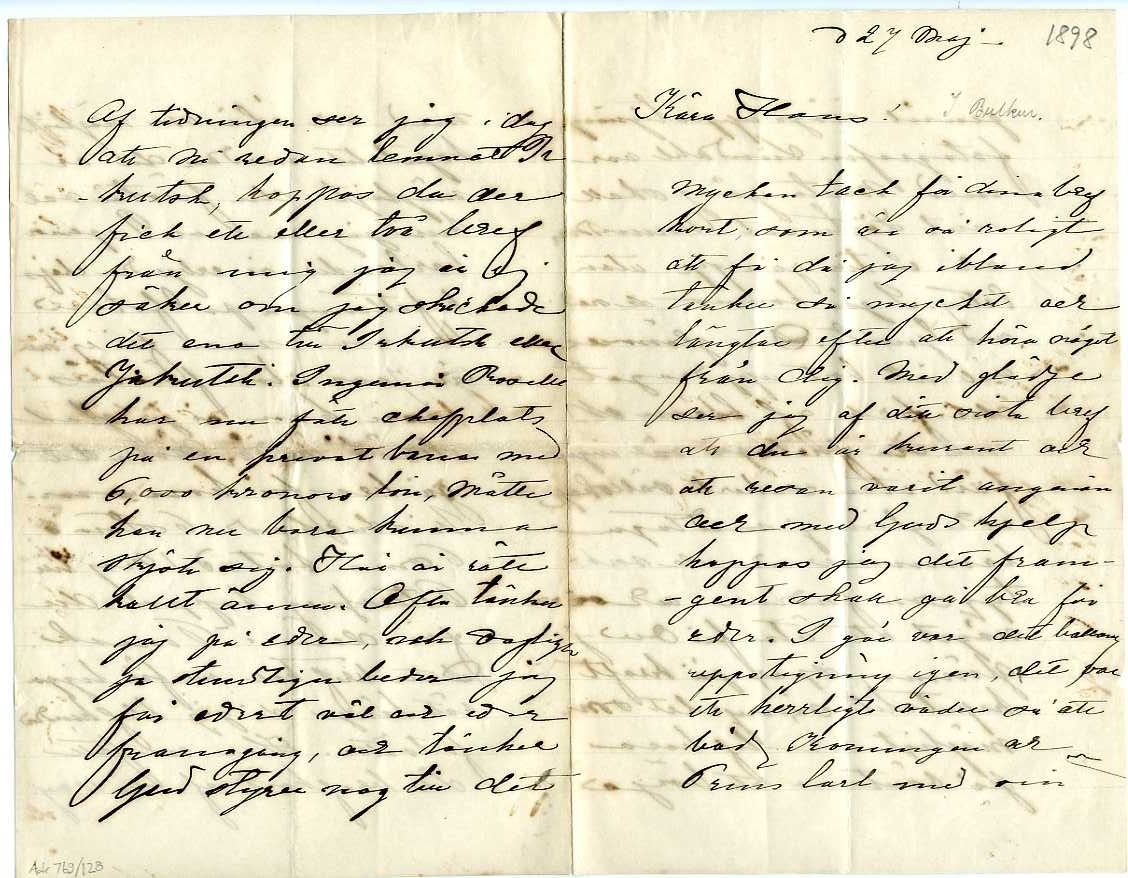 d 27 Maj
1898
Kära Hans!
I Bulkur.
Mycken tack för dina bref
kort, som är så roligt
att få då jag ibland
tänker så mycket och
längtar efter att höra något
från dig. Med glädje
ser jag af ditt sista bref
att du är kurant och
att resan varit angenäm
och med Guds hjelp
hoppas jag det fram-
-gent skall gå bra för
eder. I går var det ballong
uppstigning igen, det var
ett herrligt väder så att
både Konungen och
Prins Carl med sin
Af tidningen ser jag i dag
att Ni redan lemnat Ir
-kutsk, hoppas du der
fick ett eller två bref
från mig jag är ej
säker om jag skickade
det ena till Irkutsk eller
Jakutsk. Ingeniör
har nu fått chefplats
på en privat bana med
6,000 kronors lön, Måtte
han nu bara kunna
sköta sig. Här är rätt
kallt ännu. Ofta tänker
jag på eder, och dagligen
ja stundligen beder jag
för edert väl och eder
framgång, och tänker
Gud styrer nog till det
Ask 769/128